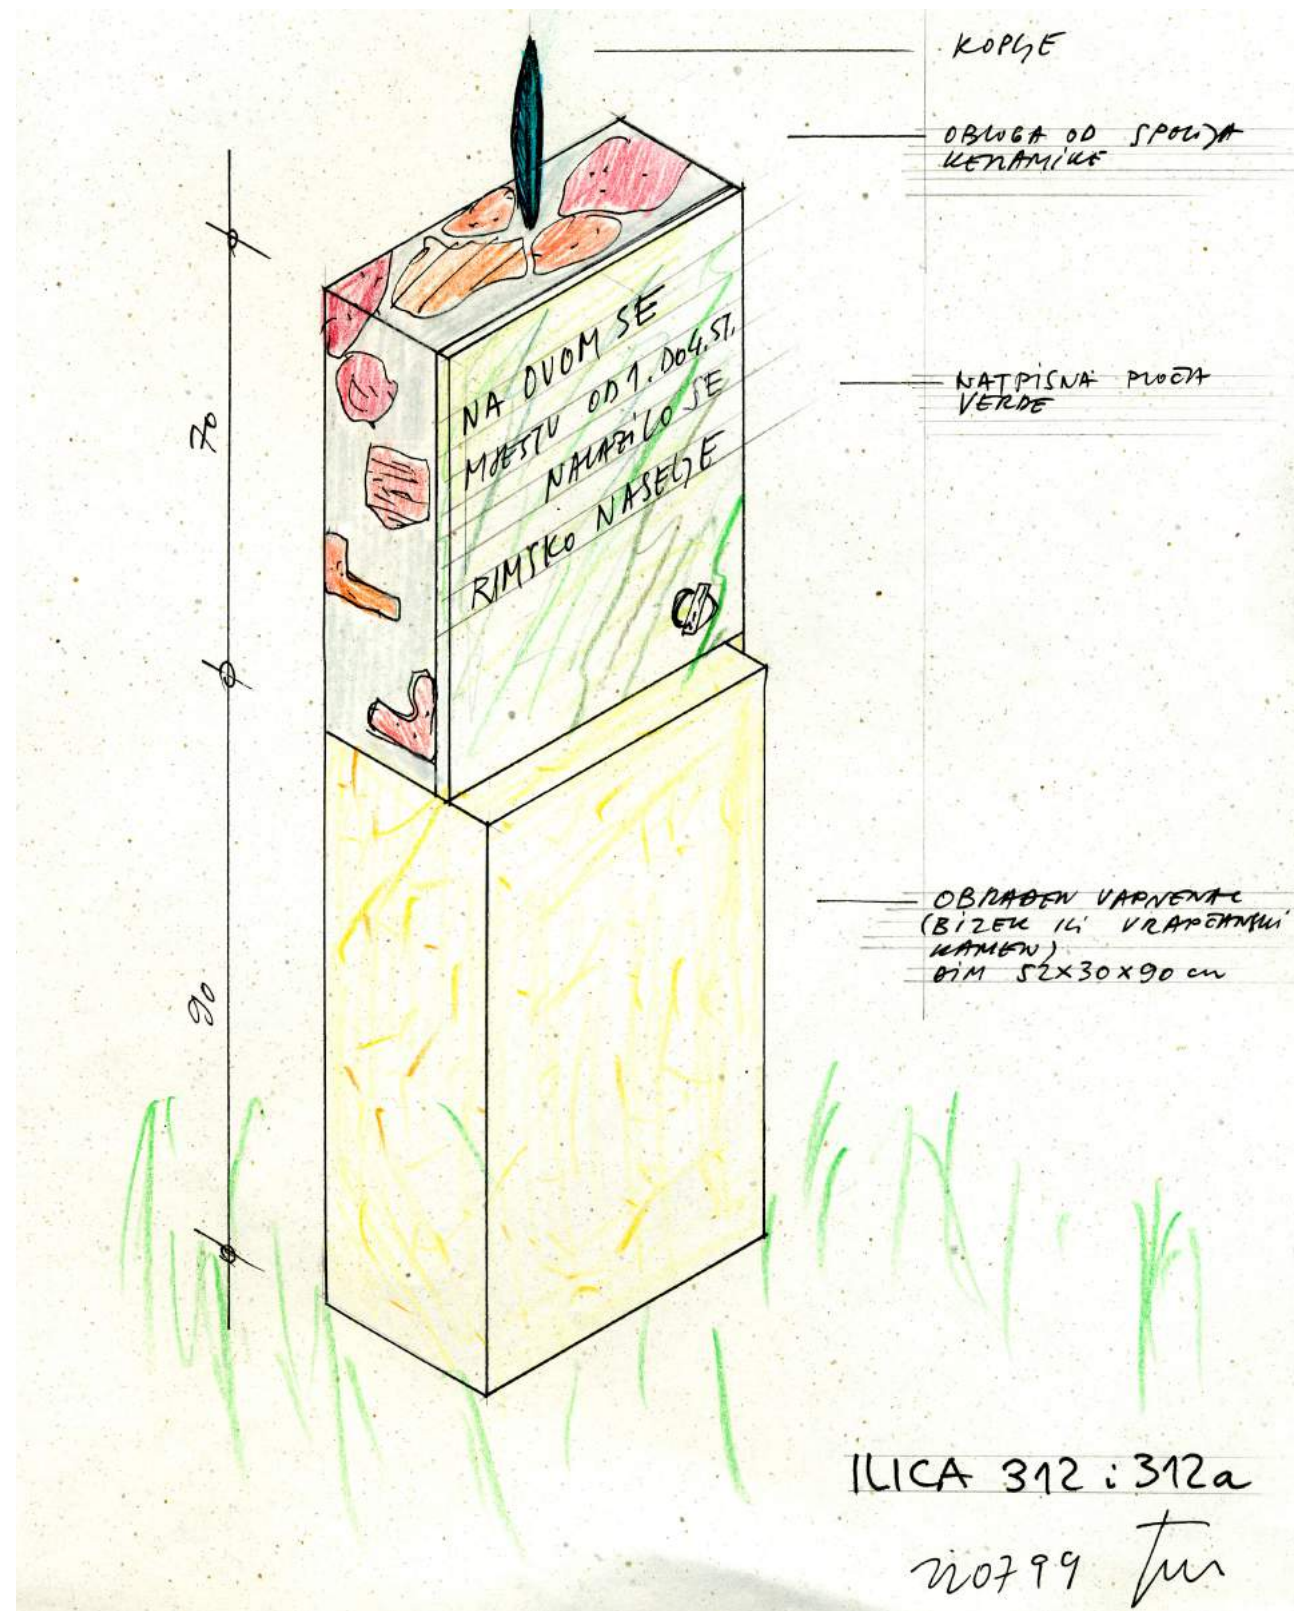 KOPLJE
OBLOGA OD SPOLIJA
KERAMIKE
NATPISNA PLOČA
VERDE
NA OVOM SE
MJESTU OD 1. DO 4. ST.
NALAZILO SE
RIMSKO NASELJE
70
90
OBRAĐEN VAPNENAC
(BIZEK ILI VRAPČANSKI
KAMEN)
DIM 52x30x90 cm
ILICA 312 i 312a
220799